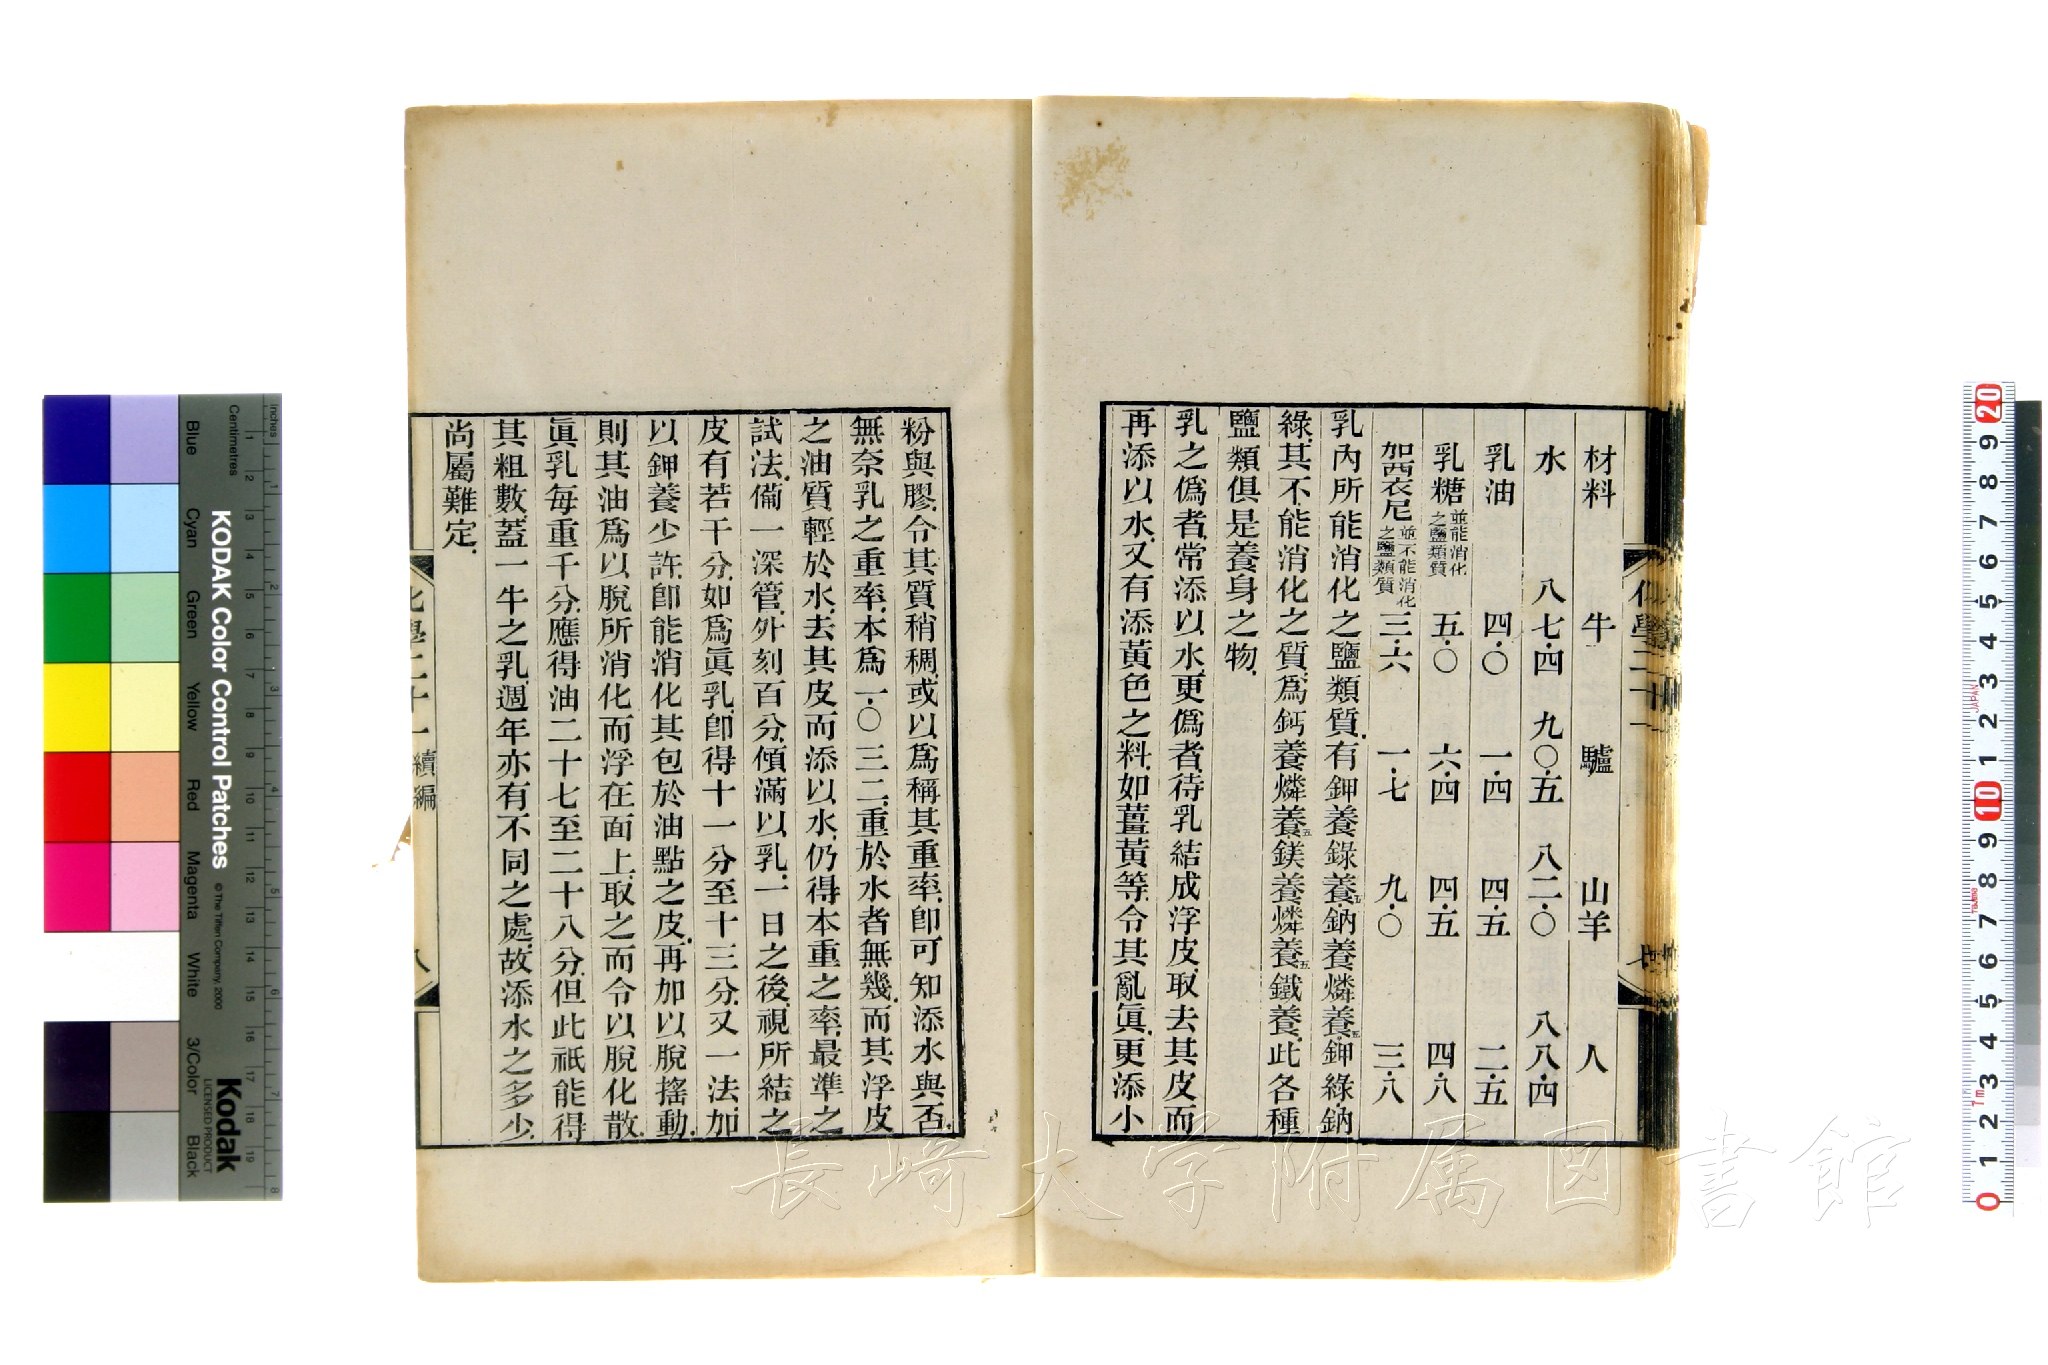 材料 牛 驢 山羊 人
水 八七·四 九〇·五 八二·〇 八八·四
乳油 四·〇 一·四 四·五 二·五
乳糖 並能消化之鹽類質 五·〇 六·四 四·五 四·八
加西衣尼 並不能消化之鹽類質 三·六 一·七 九·〇 三·八
乳內所能消化之鹽類質有鉀養錄養五鈉養燐養五鉀綠鈉
綠其不能消化之質為鈣養燐養五鎂養燐養五鐵養此各種
鹽類俱是養身之物
乳之偽者常添以水更偽者待乳結成浮皮取去其皮而
再添以水又有添黃色之料如薑黃等令其亂眞更添小
粉與膠令其質稍稠或以為稱其重率卽可知添水與否
無奈乳之重率本為一·〇三二重於水者無幾而其浮皮
之油質輕於水去其皮而添以水仍得本重之率最準之
試法備一深管外刻百分傾滿以乳一日之後視所結之
皮有若干分如為眞乳卽得十一分至十三分又一法加
以鉀養少許卽能消化其包於油點之皮再加以脫搖動
則其油為以脫所消化而浮在面上取之而令以脫化散
眞乳每重千分應得油二十七至二十八分但此祇能得
其粗數蓋一牛之乳週年亦有不同之處故添水之多少
尚屬難定
化學二十一 續編
八
KODAK Color Control Patches
© The Tiffen Company, 2000
Kodak
LICENSED PRODUCT
Inches
Centimetres
Blue Cyan Green Yellow Red Magenta White 3/Color Black
長崎大学附属図書館